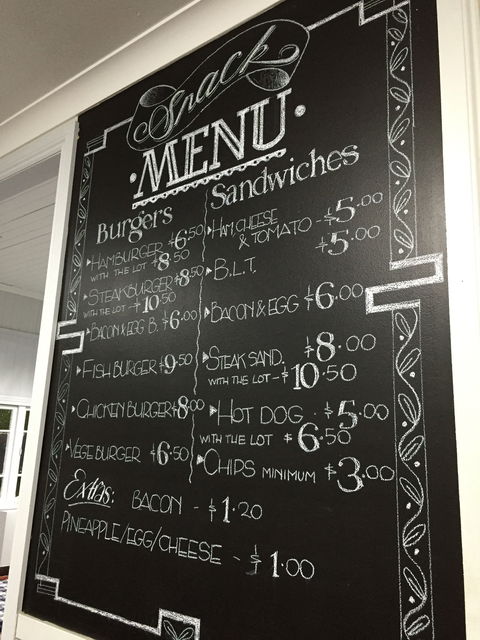 Snack
MENU
Burgers
HAMBURGER $6.50
WITH THE LOT $8.50
STEAKBURGER $8.50
WITH THE LOT - $10.50
BACON & EGG B. $6.00
FISH BURGER $9.50
CHICKEN BURGER $8.00
VEGE BURGER $6.50
Sandwiches
HAM, CHEESE
& TOMATO - $5.00
$5.00
B.L.T.
BACON & EGG $6.00
STEAK SAND. $8.00
WITH THE LOT - $10.50
HOT DOG $5.00
WITH THE LOT $6.50
CHIPS MINIMUM $3.00
Extras: BACON - $1.20
PINEAPPLE/EGG/CHEESE - $1.00